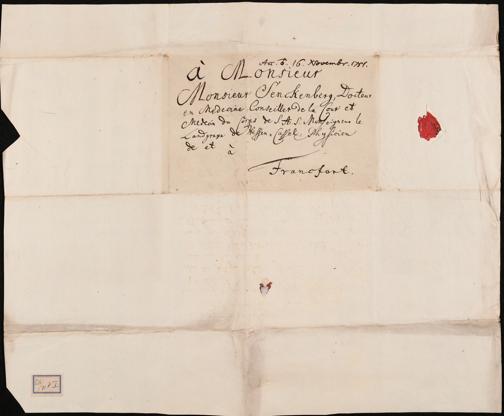 Acc. d. 16. Novembr. 1751.
à Monsieur
Monsieur Senckenberg, Docteur
en Medecine Conseiller de la Cour et
Medecin du Corps de S. A. S. Monseigneur le
Landgrave de Hessen-Cassel Physicien
de et à
Francfort.